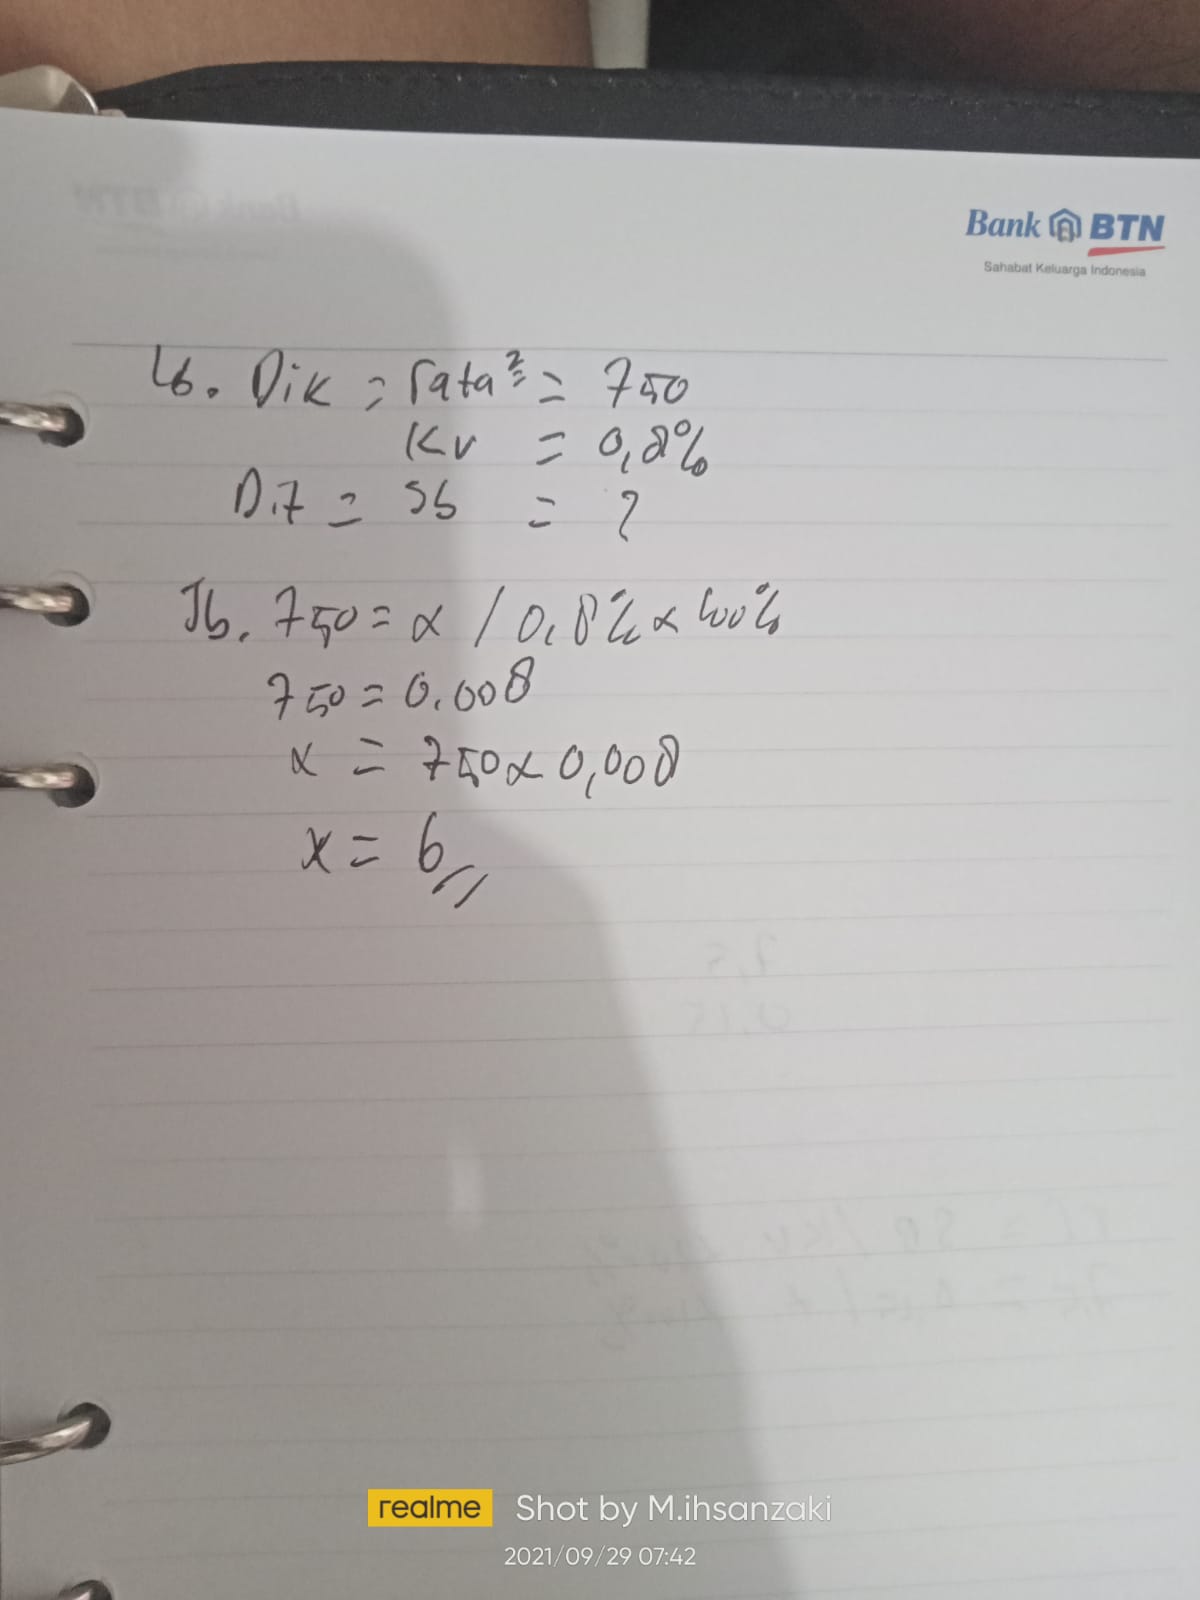 Bank BTN
Sahabat Keluarga Indonesia
16. Dik = rata² = 750
KV = 0,8%
Dit = Sb = ?
Jb. 750 = x / 0,8% x 100%
750 = 0.008
x = 750 x 0,008
x = 6
realme Shot by M.ihsanzaki
2021/09/29 07:42